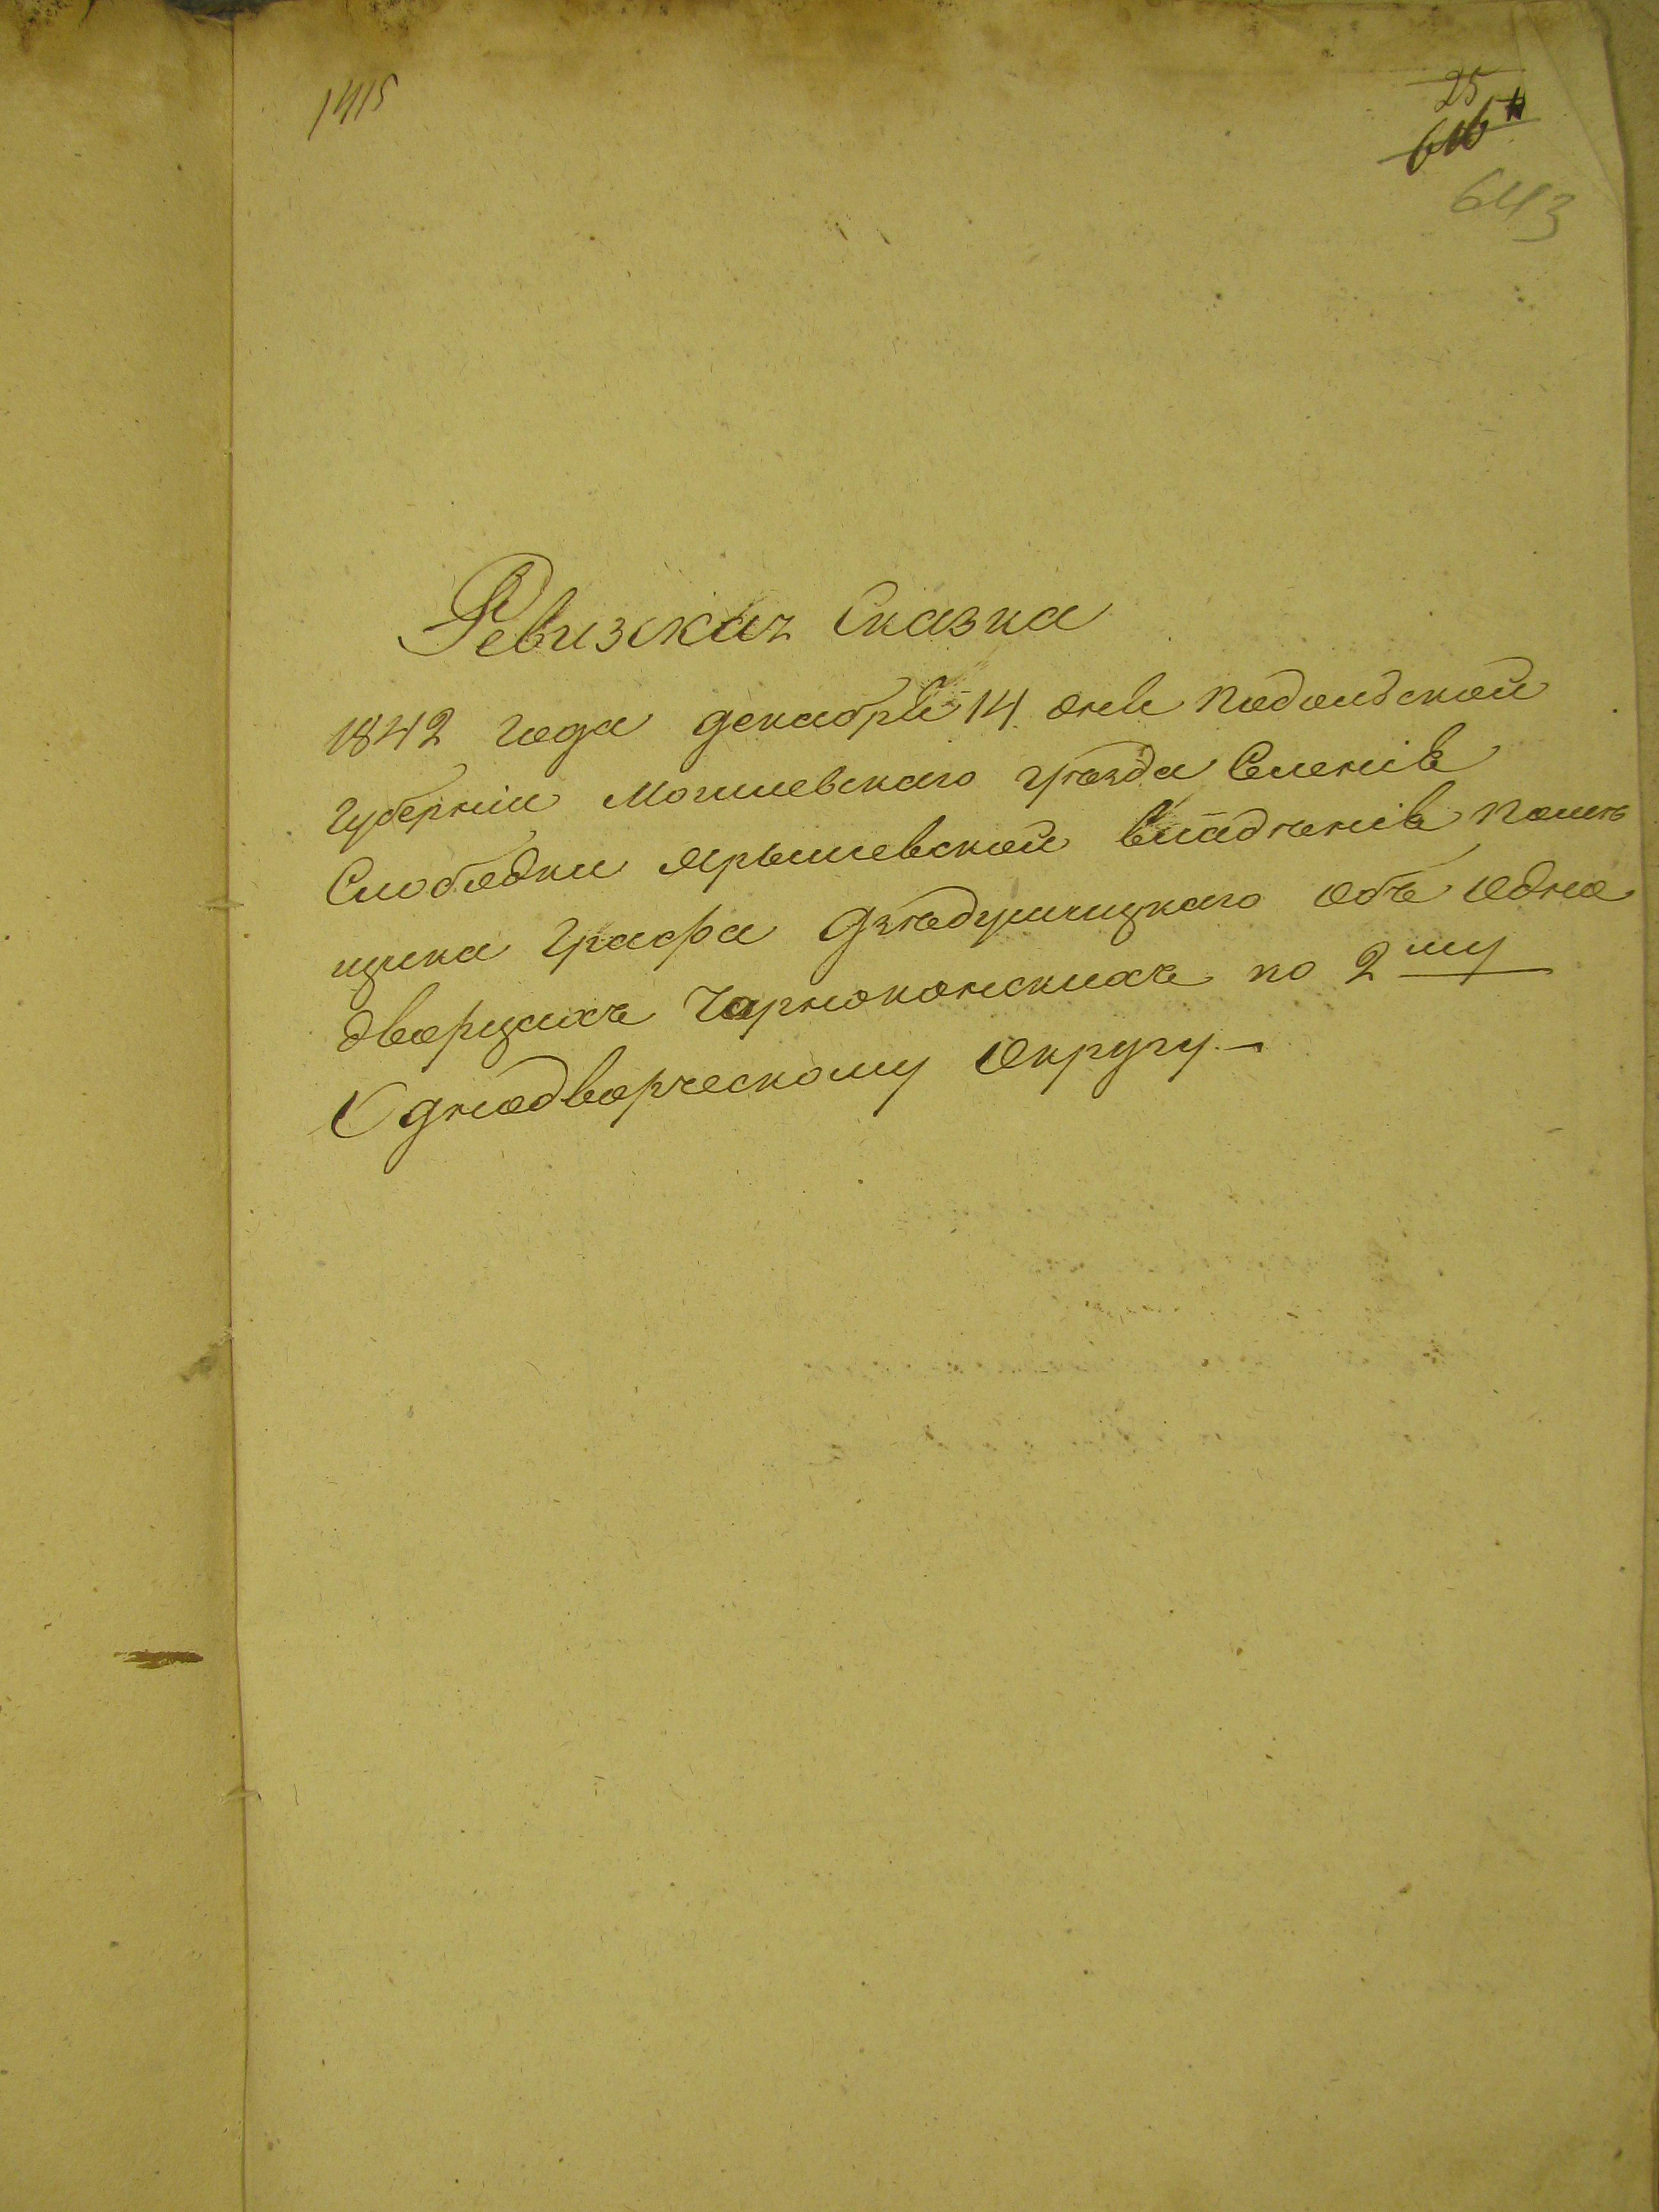 1415
25
616
643
Ревизская Сказка
1842 года декабря 14 дня Подольской
Губерніи Могилевскаго уѣзда Селенія
Слободки Ярышевской Владѣнія помѣ
щика Графа Дзѣдушицкаго объ одно
дворцахъ Чарноконскихъ по 2му
Однодворческому Округу.—